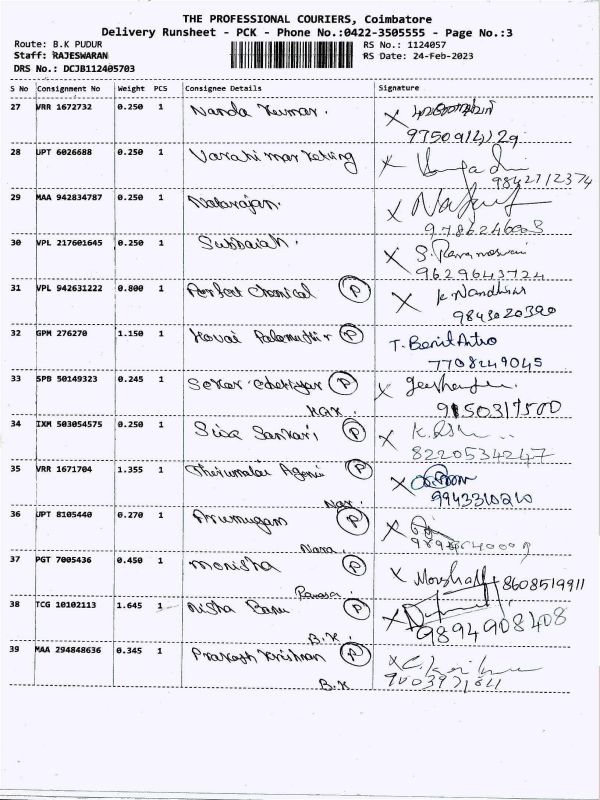 THE PROFESSIONAL COURIERS, Coimbatore
Delivery Runsheet - PCK - Phone No.:0422-3505555 - Page No.:3
Route: B.K PUDUR RS No.: 1124057
Staff: RAJESWARAN RS Date: 24-Feb-2023
DRS No.: DCJB112405703
S No Consignment No Weight PCS Consignee Details Signature
27 VRR 1672732 0.250 1 Nanda Kumar. X
9750914229
28 UPT 6026688 0.250 1 Varahi marketing X
9842712374
29 MAA 942834787 0.250 1 Natarajan. X
9786246003
30 VPL 217601645 0.250 1 Subbaiah. X S.
9629643724
31 VPL 942631222 0.800 1 Perfect Chemical P X K. Nandhini
9843020390
32 GPM 276270 1.150 1 Kovai Palamudhir P T. Benil Antro
7708249045
33 SPB 50149323 0.245 1 Sekar Chettiyar P X
9150317500
34 IXM 503054575 0.250 1 Siva Sankari P X
8220534247
35 VRR 1671704 1.355 1 Thirumalai P X
9943310210
36 UPT 8105440 0.270 1 Arumugam P X
37 PGT 7005436 0.450 1 Monisha P X 8608519911
38 TCG 10102113 1.645 1 Nisha Banu P X
B.K. 9894908408
39 MAA 294848636 0.345 1 Prakash Krishnan P X
B.K